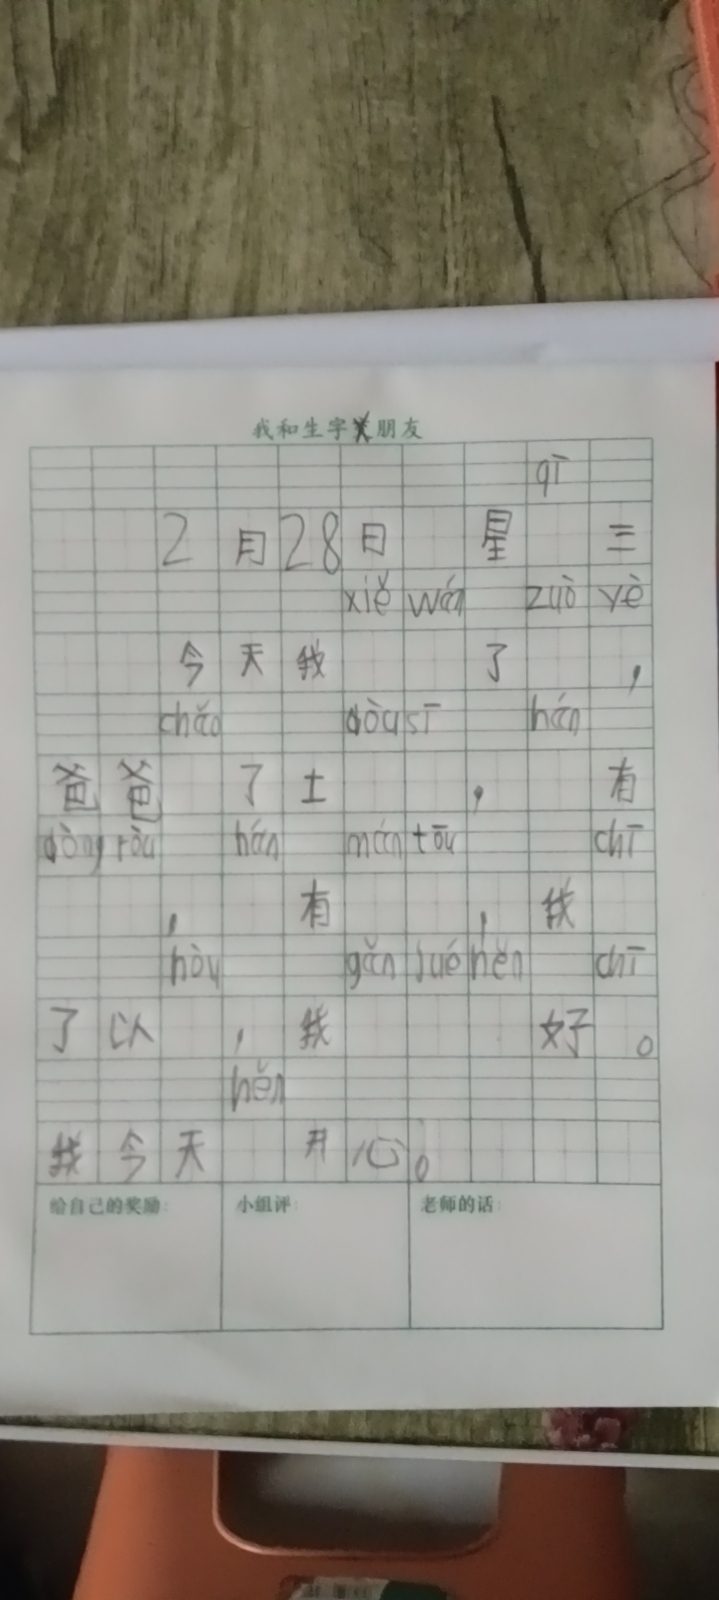 我和生字交朋友
qī
2月28日 星 三
xiě wán zuò yè
今天我 了 ，
chǎo dòu sī hán
爸爸 了土 ， 有
dòng ròu hán mán tōu chī
， 有 ，我
hòu gǎn jué hěn chī
了以 ，我 好。
hěn
我今天 开心。
给自己的奖励：
小组评：
老师的话：